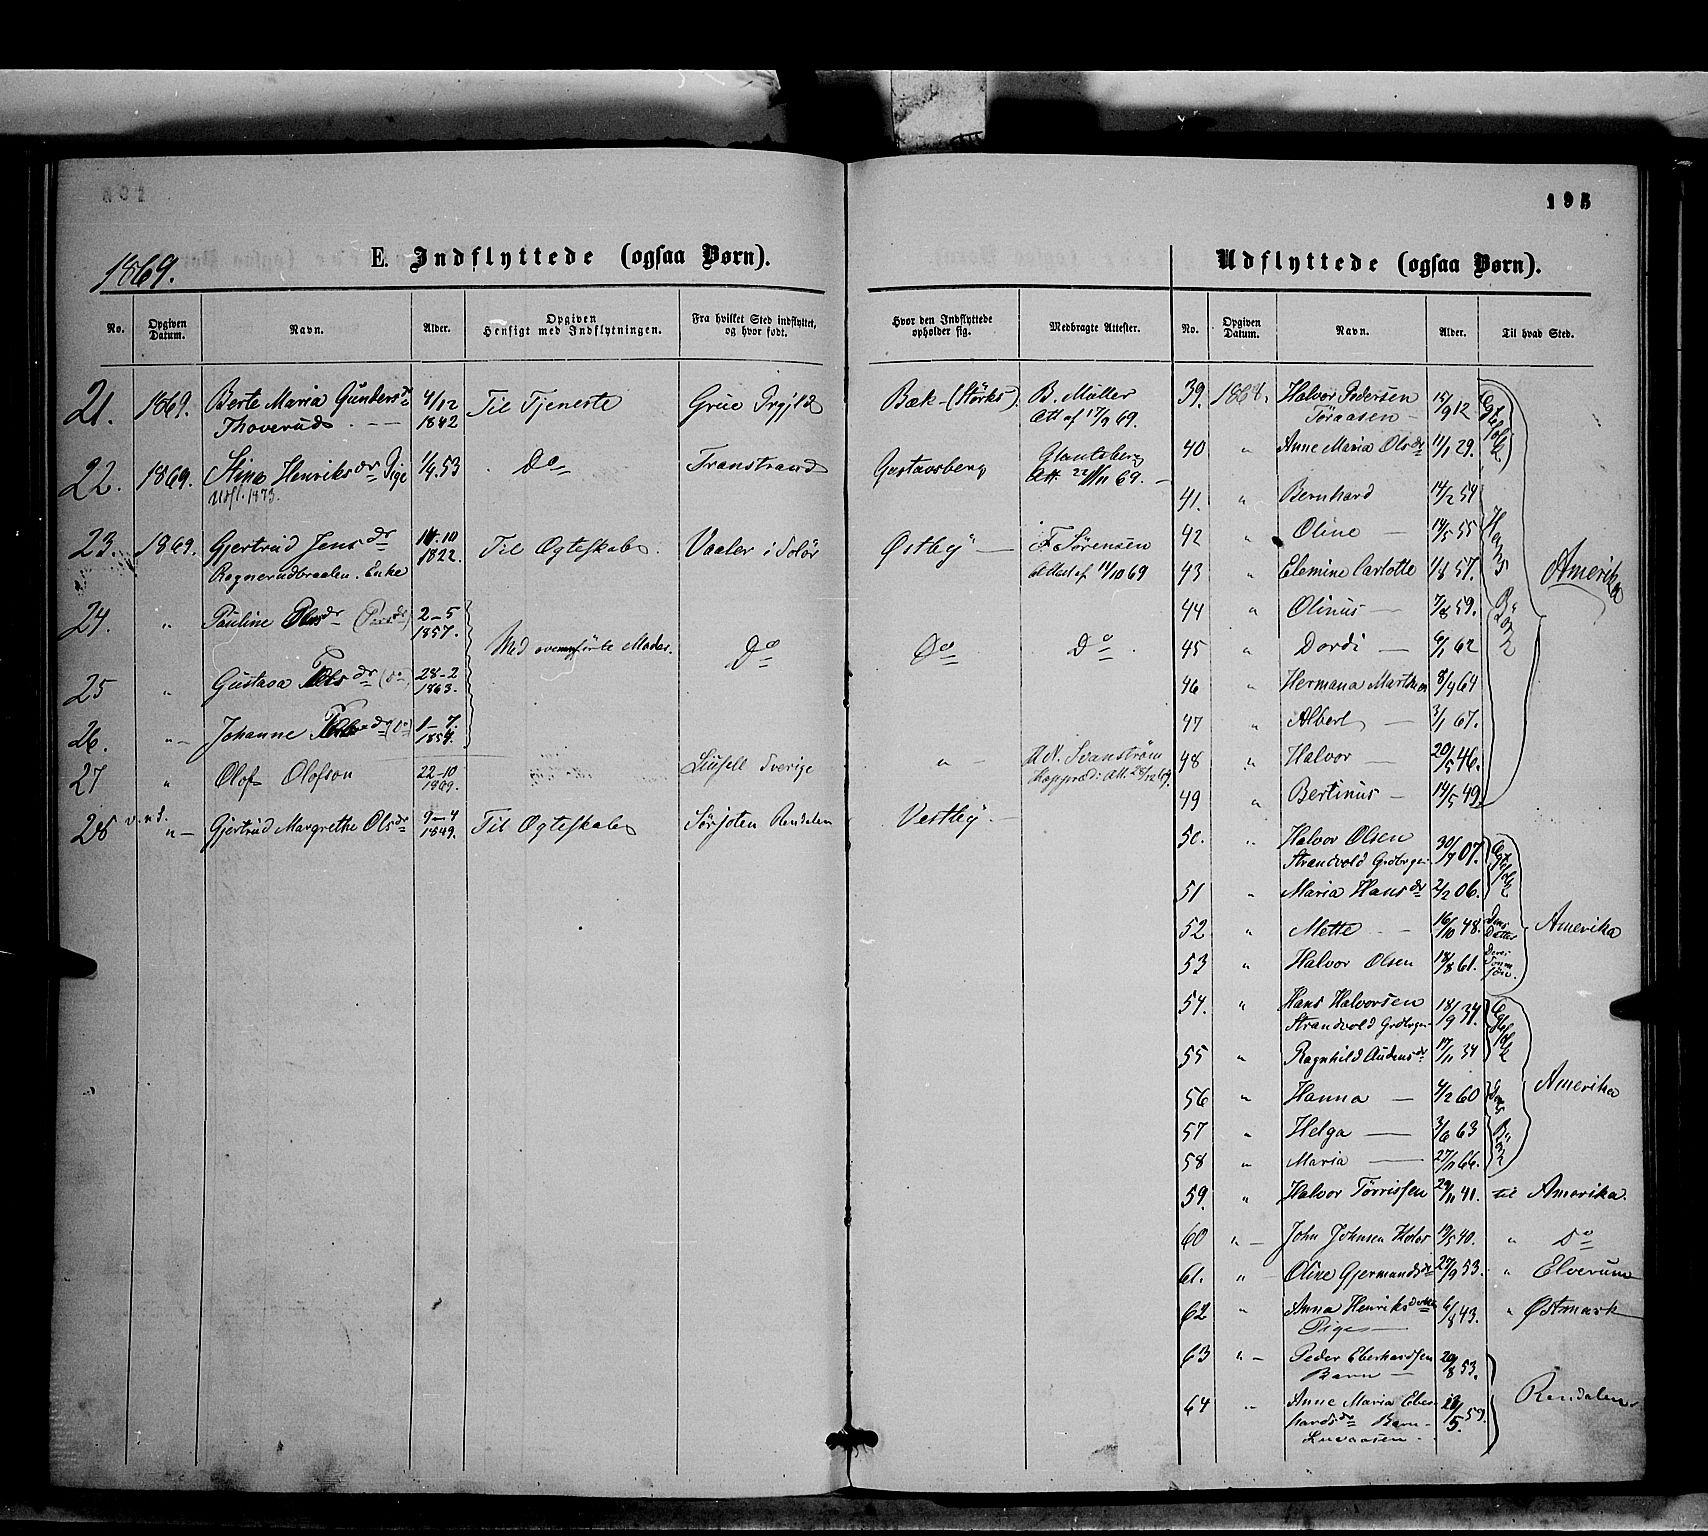 195
1869.
E. Indflyttede (ogsaa Børn).
No. Opgiven Datum. Navn. Alder. Opgiven Hensigt med Indflytningen. Fra hvilket Sted indflyttet, og hvor født. Hvor den Indflyttede opholder sig. Medbragte Attester.
21. 1869. Berte Maria Gundersdr 4/12 Til Tjeneste Grue Bæk (Størks). B. Müller
Thoverud 1842 Att af 17/9 69.
22. 1869. Stina Henriksdr Pige 1/9.53 Do Transtrand Gustavsberg
Udfl. 1873. Att. 69.
23. 1869. Gjertrud Jensdr 10 Til Ægteskab. Vaaler i Solør Østby F Sørensen
Enke 1822. Attest af 11/10 69
24. " Pauline 2-5
1857. Med ovennførte Moder. Do Do Do
25 " Gustava 28-2
1863.
26. " Johanne 1-7.
27 " Olof Olofson 22-10 Sverige " Svanströn
28 " Gjertrud Margrethe Olsdr 9-4
1849. Til Ægteskab Rendalen Vestby
Udflyttede (ogsaa Børn).
No. Opgiven Datum. Navn. Alder. Til hvad Sted.
39. 1868. Halvor Pedersen 15/9 12 Ægtefolk
Töraasen
40 " Anne Maria Olsdr 11/1 29.
41. " Bernhard 14/2 54 Hans Børn
42 " Oline 14/5 55
43 " Elemine Carlotte 1/8 57. Amerika
44 " Olinus 7/8 59.
45 " Dordi 6/1 62
46 " Hermana 8/9 64
47 " Albert 3/1 67.
48 " Halvor 20/5 46.
49 " Bertinus 14/5 49
50. " Halvor Olsen 07. Ægtefolk
Strandvold
51 " Maria Hansdr 2/2 06.
52 " Mette 16/10 48. Datter Amerika
53 " Halvor Olsen 18/8 61.
54. " Hans Halvorsen 18/19 34. Ægtefolk
Strandvold
55 " Ragnhild Audensdr 17/11 34
56 " Hanna 4/2 60 Børn Amerika
57 " Helga 3/6 63
58 " Maria 66.
59. " Halvor Torrissen 29/11 41. til Amerika.
60 " John Johnsen 19/5 40. " Do
61. " Oline Gjermundsdr 27/9 53. " Elverum
62 " Anna Henriksdatter 6/8 43. " Østmark
Pige
63 " Peder Eberhardsen 53.
Barn
Rendalen
64 " Anne Maria Eber
hardsdr Barn